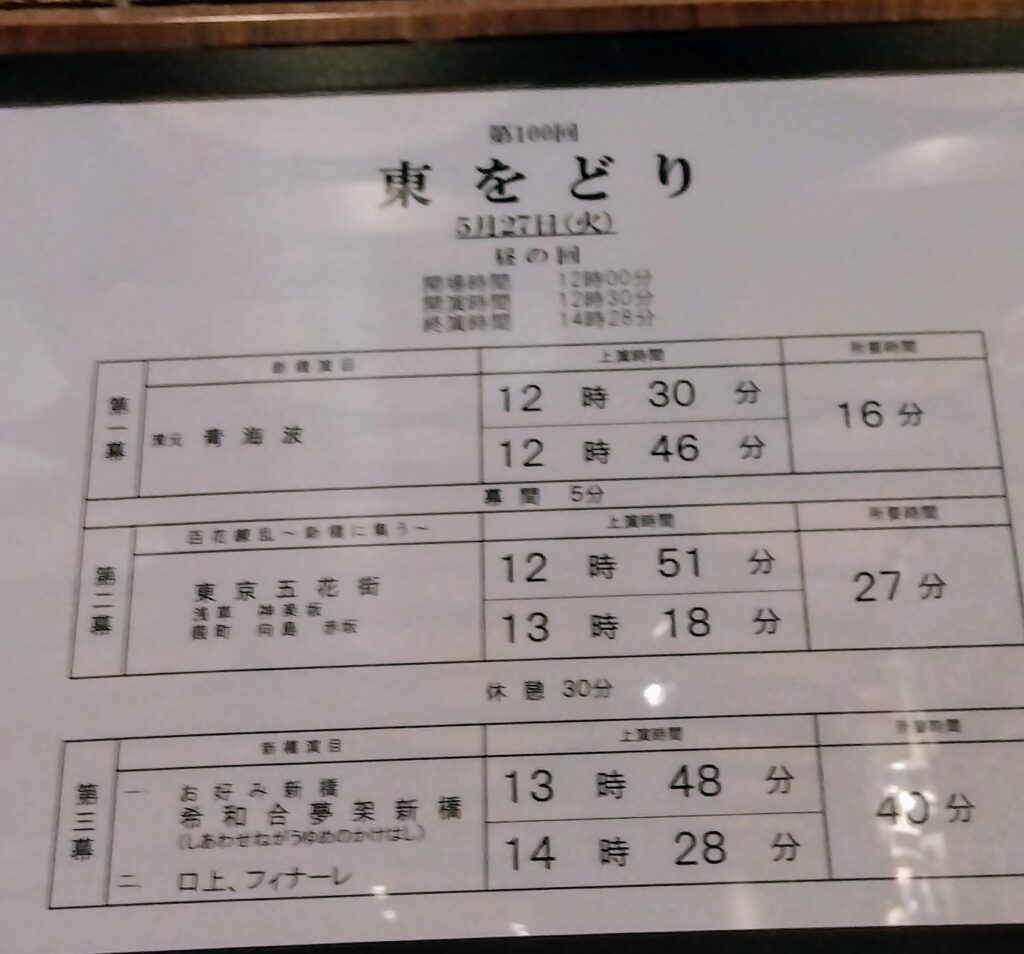 第100回
東をどり
5月27日(火)
昼の回
開場時間 12時00分
開演時間 12時30分
終演時間 14時28分
第一幕
新橋演目 上演時間 所要時間
清元 青海波
12時30分
12時46分
16分
幕間 5分
第二幕
百花繚乱～新橋に集う～ 上演時間 所要時間
東京五花街
浅草 神楽坂
葭町 向島 赤坂
12時51分
13時18分
27分
休憩 30分
第三幕
新橋演目 上演時間 所要時間
一 お好み新橋
希和合夢架新橋
(しあわせながうゆめのかけはし)
二 口上、フィナーレ
13時48分
14時28分
40分